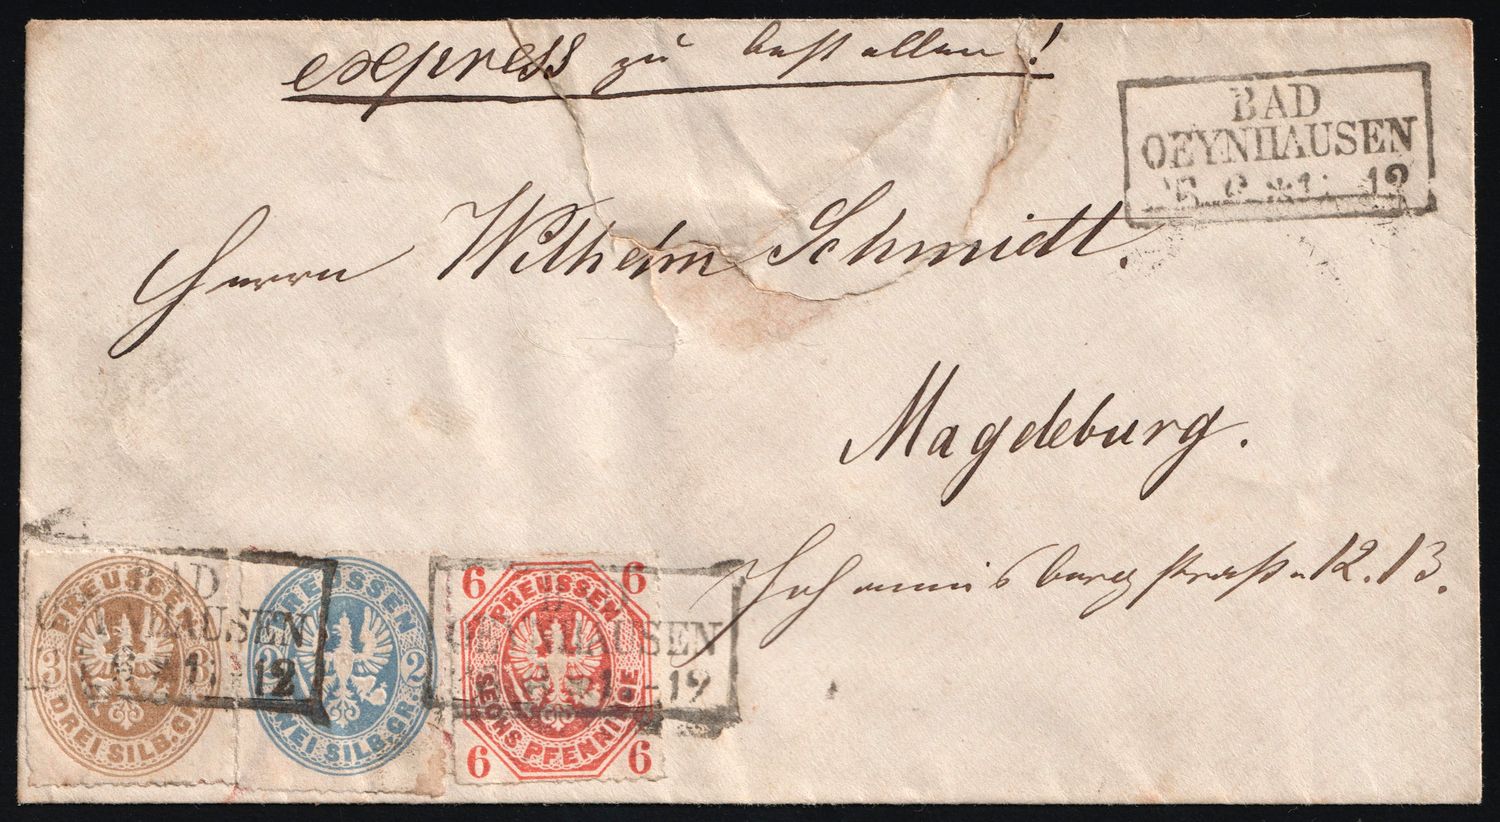 express zu bestellen!
BAD
OEYNHAUSEN
12
Herrn Wilhelm Schmidt.
Magdeburg.
Johannisbergstraße 12.13.
PREUSSEN
3 3
DREI SILB.GR.
HAUSEN
12
PREUSSEN
2 2
ZWEI SILB.GR.
6 6
PREUSSEN
SECHS PFENNINGE
6 6
OEYNHAUSEN
12